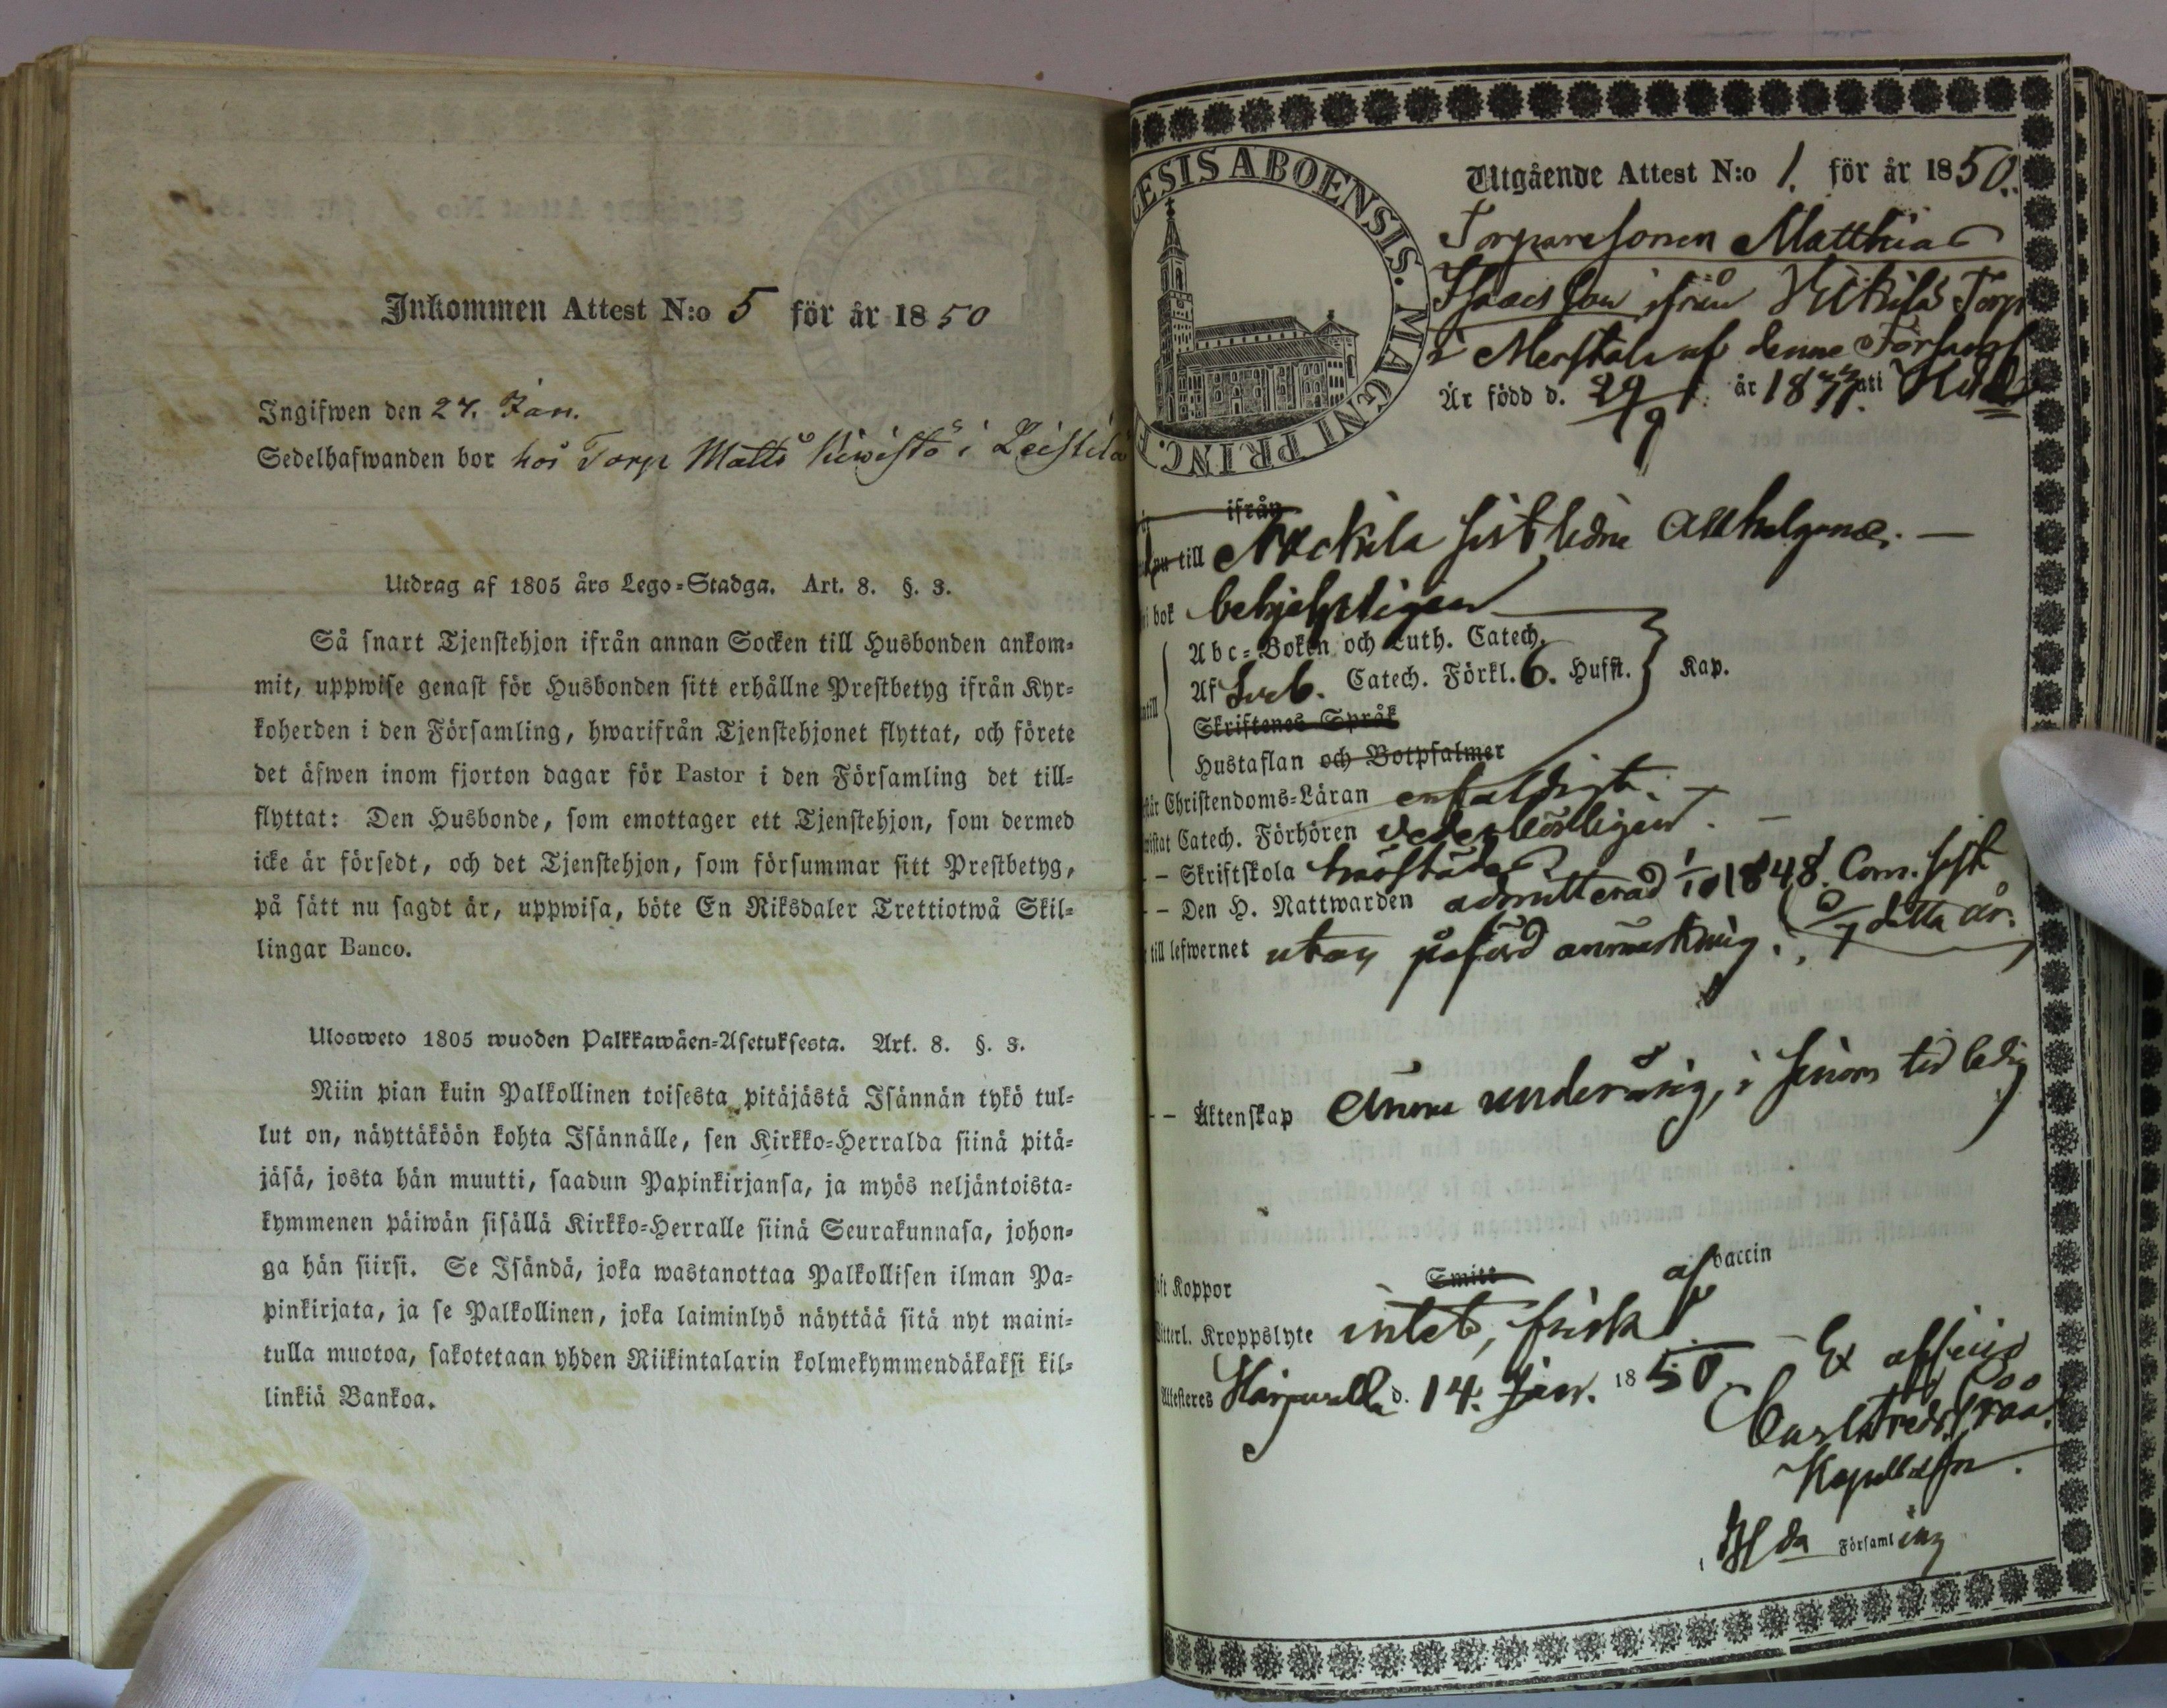 Inkommen Attest N:o 5 för år 1850
Ingifwen den 27. Jan.
Sedelhafwanden bor hos Torp Matts Kiwistö i Leistilä
Utdrag af 1805 års Lego-Stadga. Art. 8. §. 3.
Så snart Tjenstehjon ifrån annan Socken till Husbonden ankom-
mit, uppwise genast för Husbonden sitt erhållne Prestbetyg ifrån Kyr-
koherden i den Församling, hwarifrån Tjenstehjonet flyttat, och förete
det äfwen inom fjorton dagar för Pastor i den Församling det till-
flyttat: Den Husbonde, som emottager ett Tjenstehjon, som dermed
icke är försedt, och det Tjenstehjon, som försummar sitt Prestbetyg,
på sätt nu sagdt är, uppwisa, böte En Riksdaler Trettiotwå Skil-
lingar Banco.
Ulosweto 1805 wuoden Palkkawäen-Asetuksesta. Art. 8. §. 3.
Niin pian kuin Palkollinen toisesta pitäjästä Isännän tykö tul-
lut on, näyttäköön kohta Isännälle, sen Kirkko-Herralda siinä pitä-
jäsä, josta hän muutti, saadun Papinkirjansa, ja myös neljäntoista-
kymmenen päiwän sisällä Kirkko-Herralle siinä Seurakunnasa, johon-
ga hän siirsi. Se Isändä, joka wastanottaa Palkollisen ilman Pa-
pinkirjata, ja se Palkollinen, joka laiminlyö näyttää sitä nyt maini-
tulla muotoa, sakotetaan yhden Riikintalarin kolmekymmendäkaksi kil-
linkiä Bankoa.
ESIS ABOENSIS. MAGNI PRINC. F
Utgående Attest N:o 1. för år 1850.
Torparesonen Matthias
Isaacsson ifrån Torp
i af denne Församl
Är född d. 29/9 år 1833 ati
ifrån
nu till sistledne Allhelgona. —
i bok behjelpligen
Abc-Boken och Luth. Catech.
Af Sveb. Catech. Förkl. 6. Hufst. Kap.
Skriftenes Språk
Hustaflan och Botpsalmer
står Christendoms-Läran enfaldigt. —
wistat Catech. Förhören vederbörligen. —
- - Skriftskola
- - Den H. Nattwarden admitterad 1/10 1848. Com. sist
till lefwernet utan påförd anmärkning. /7 detta år.
- - Äktenskap ännu underårig, i sinom tid ledig
aft Koppor Smitt af vaccin
Witterl. Kroppslyte intet, frisk. — Ex officio
Attesteres d. 14. Jan. 1850.
Kapellan
i Församling